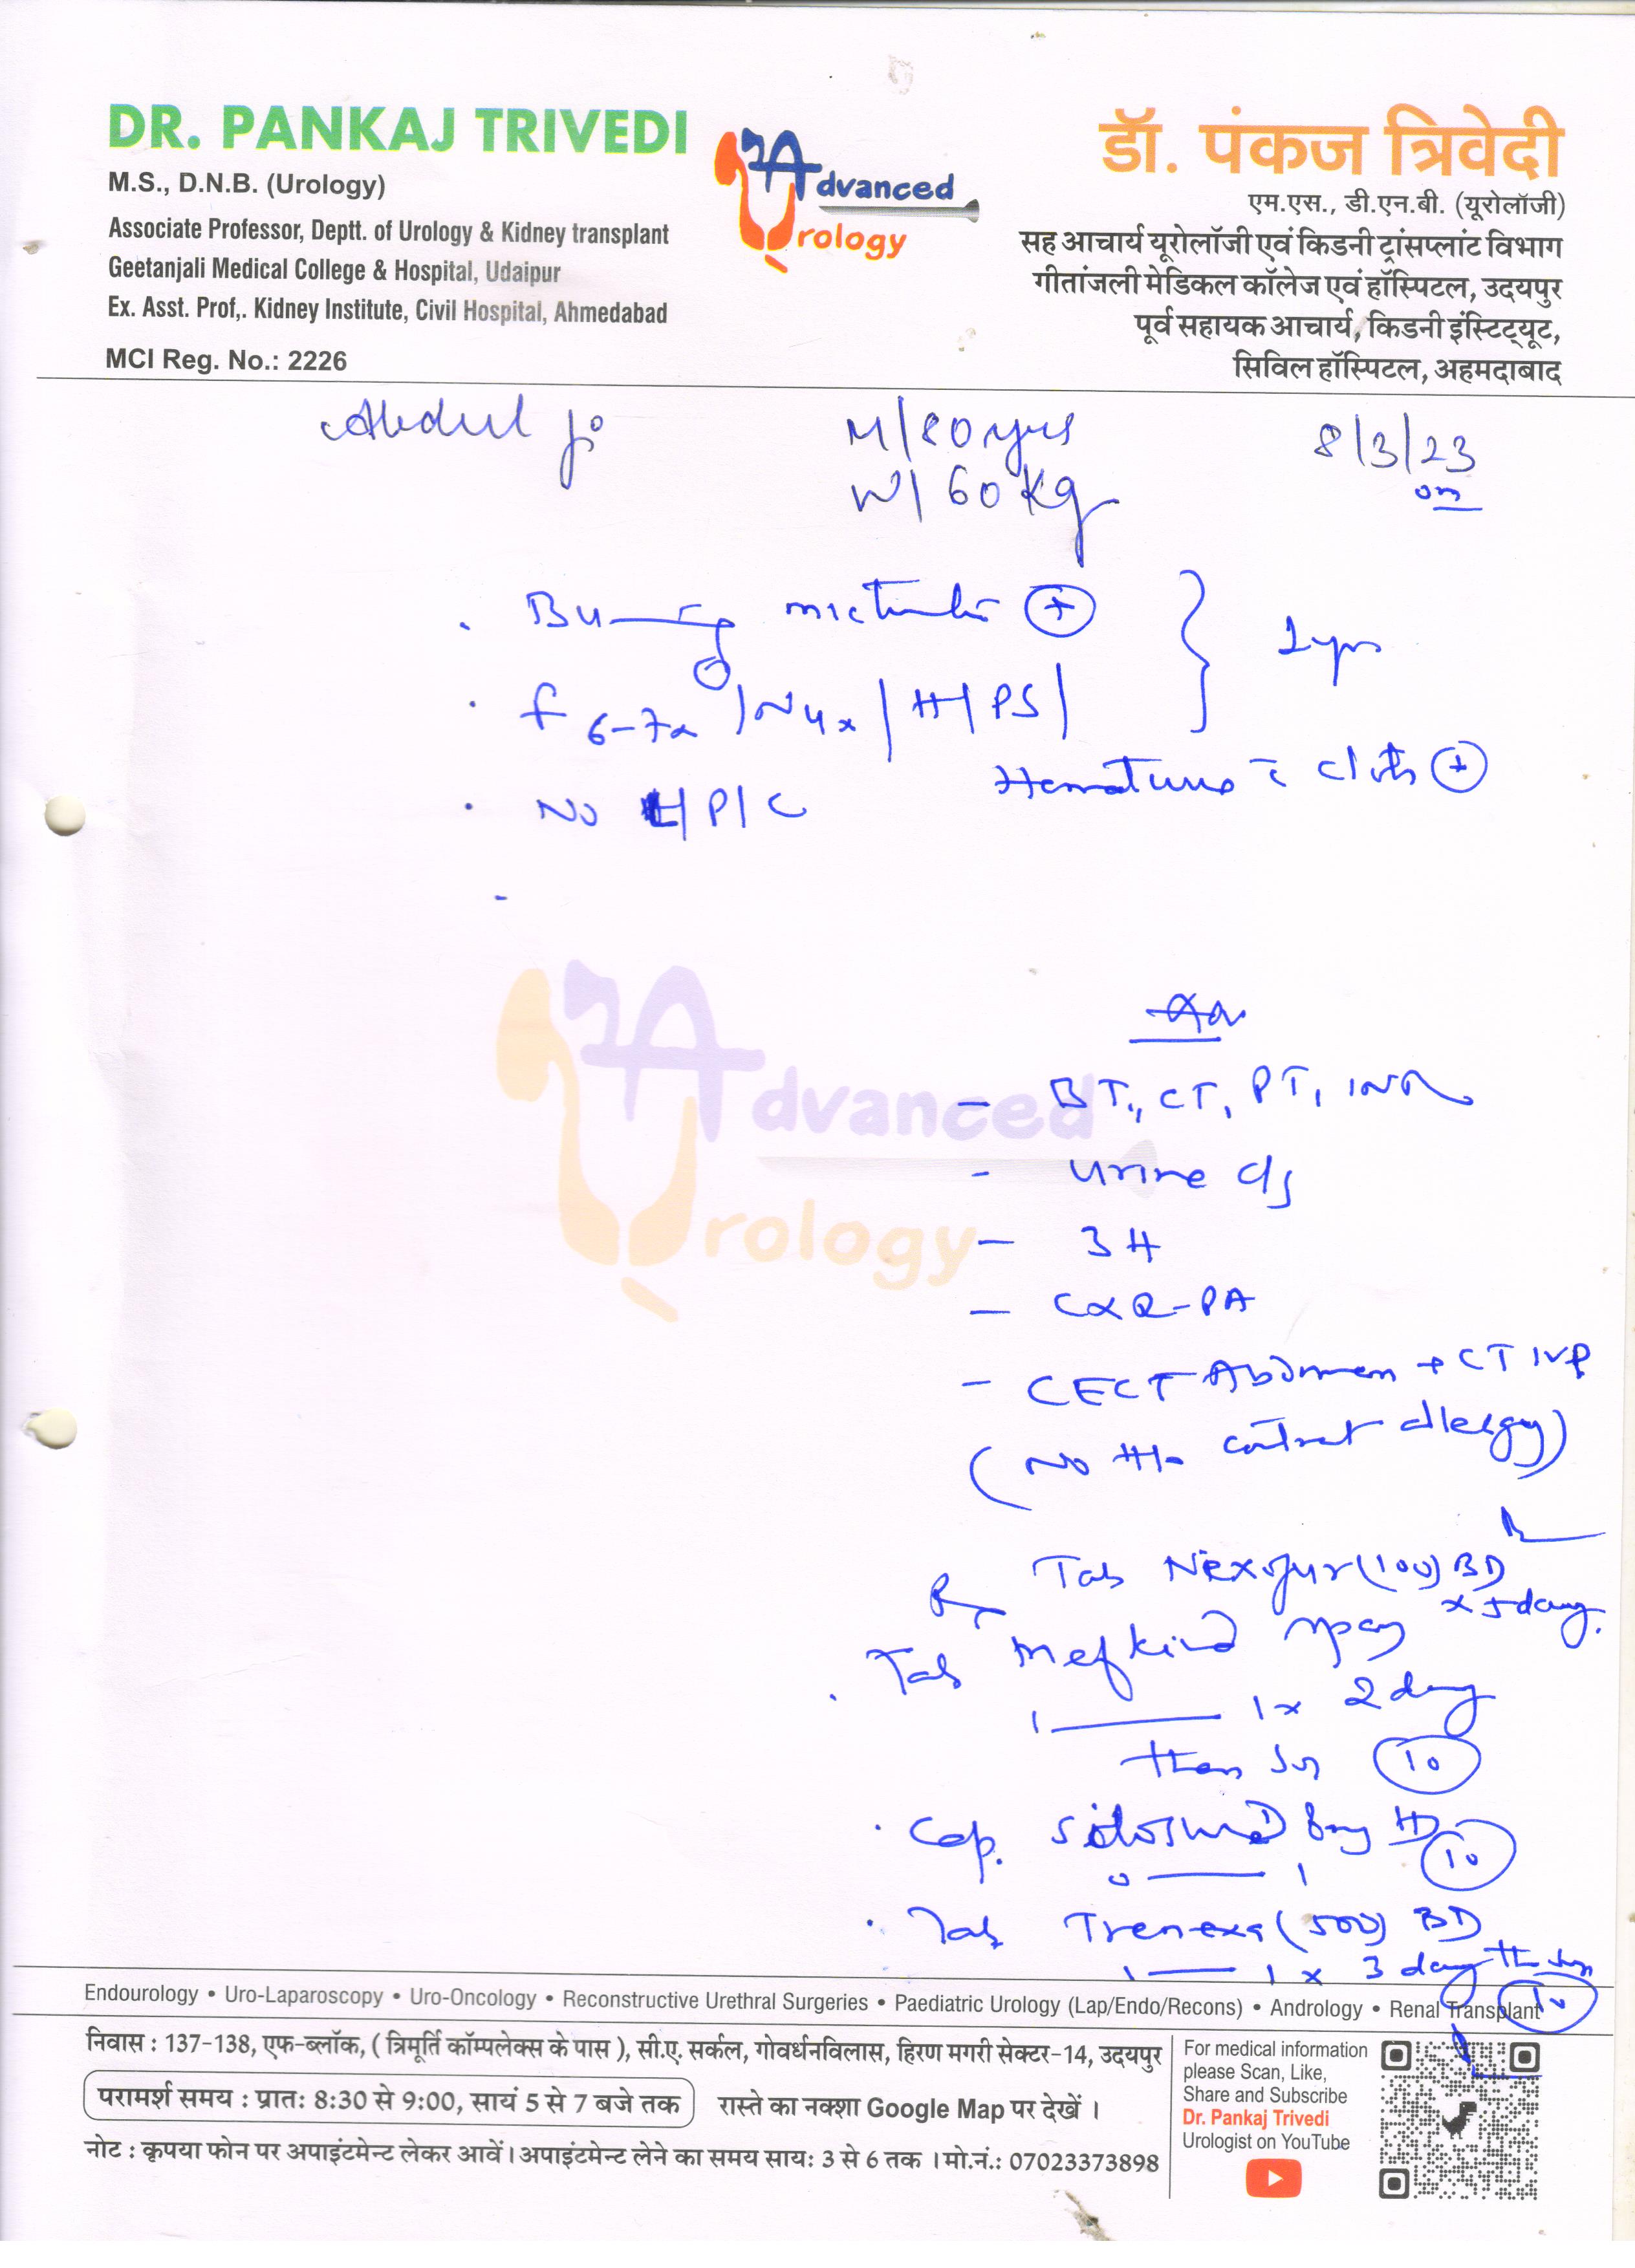 DR. PANKAJ TRIVEDI
M.S., D.N.B. (Urology)
Associate Professor, Deptt. of Urology & Kidney transplant
Geetanjali Medical College & Hospital, Udaipur
Ex. Asst. Prof,. Kidney Institute, Civil Hospital, Ahmedabad
MCI Reg. No.: 2226
Advanced
Urology
डॉ. पंकज त्रिवेदी
एम.एस., डी.एन.बी. (यूरोलॉजी)
सह आचार्य यूरोलॉजी एवं किडनी ट्रांसप्लांट विभाग
गीतांजली मेडिकल कॉलेज एवं हॉस्पिटल, उदयपुर
पूर्व सहायक आचार्य, किडनी इंस्टिट्यूट,
सिविल हॉस्पिटल, अहमदाबाद
Abdul ji M/80 yrs 8/3/23
W/ 60 Kg
. Burning +
. f 6-7x / N4x / H/ PS/
Hematuria c̄ clots +
. No H/P/C
Advanced
Urology
- BT, CT, PT, INR
- Urine c/s
- 3 H
- CXR-PA
- CECT Abdomen + CT IVP
(No H/o contrast allergy)
Rx Tab (100) BD
x 5 day.
. Tab Mefkind
1 — 1 x 2 day
then sos 10
. Cap. HD 10
0 — 1
. Tab Trenexa (500) BD
1 — 1 x 3 day then sos 10
Endourology • Uro-Laparoscopy • Uro-Oncology • Reconstructive Urethral Surgeries • Paediatric Urology (Lap/Endo/Recons) • Andrology • Renal Transplant
निवास : 137-138, एफ-ब्लॉक, ( त्रिमूर्ति कॉम्पलेक्स के पास ), सी.ए. सर्कल, गोवर्धनविलास, हिरण मगरी सेक्टर-14, उदयपुर
परामर्श समय : प्रातः 8:30 से 9:00, सायं 5 से 7 बजे तक रास्ते का नक्शा Google Map पर देखें ।
नोट : कृपया फोन पर अपाइंटमेन्ट लेकर आवें। अपाइंटमेन्ट लेने का समय सायः 3 से 6 तक । मो.नं.: 07023373898
For medical information
please Scan, Like,
Share and Subscribe
Dr. Pankaj Trivedi
Urologist on YouTube